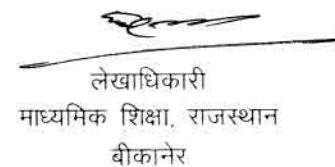 लेखाधिकारी
माध्यमिक शिक्षा, राजस्थान
बीकानेर